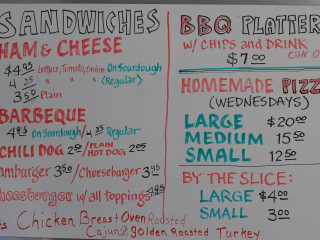 SANDWICHES
HAM & CHEESE
$4.95 Lettuce, Tomato, Onion On Sourdough
4.25 " " " (Regular)
3.50 Plain
BARBEQUE
4.95 On Sourdough / 4.25 Regular
CHILI DOG 2.95 / PLAIN HOT DOG 2.05
amburger 3.50 / Cheeseburger 3.95
heeseburger w/ all toppings 4.95
Chicken Breast Oven Roasted
Cajun & golden Roasted Turkey
BBQ PLATTER
W/ CHIPS and DRINK
$7.00
HOMEMADE PIZZ
(WEDNESDAYS)
LARGE $20.00
MEDIUM 15.50
SMALL 12.50
BY THE SLICE:
LARGE $4.00
SMALL 3.00